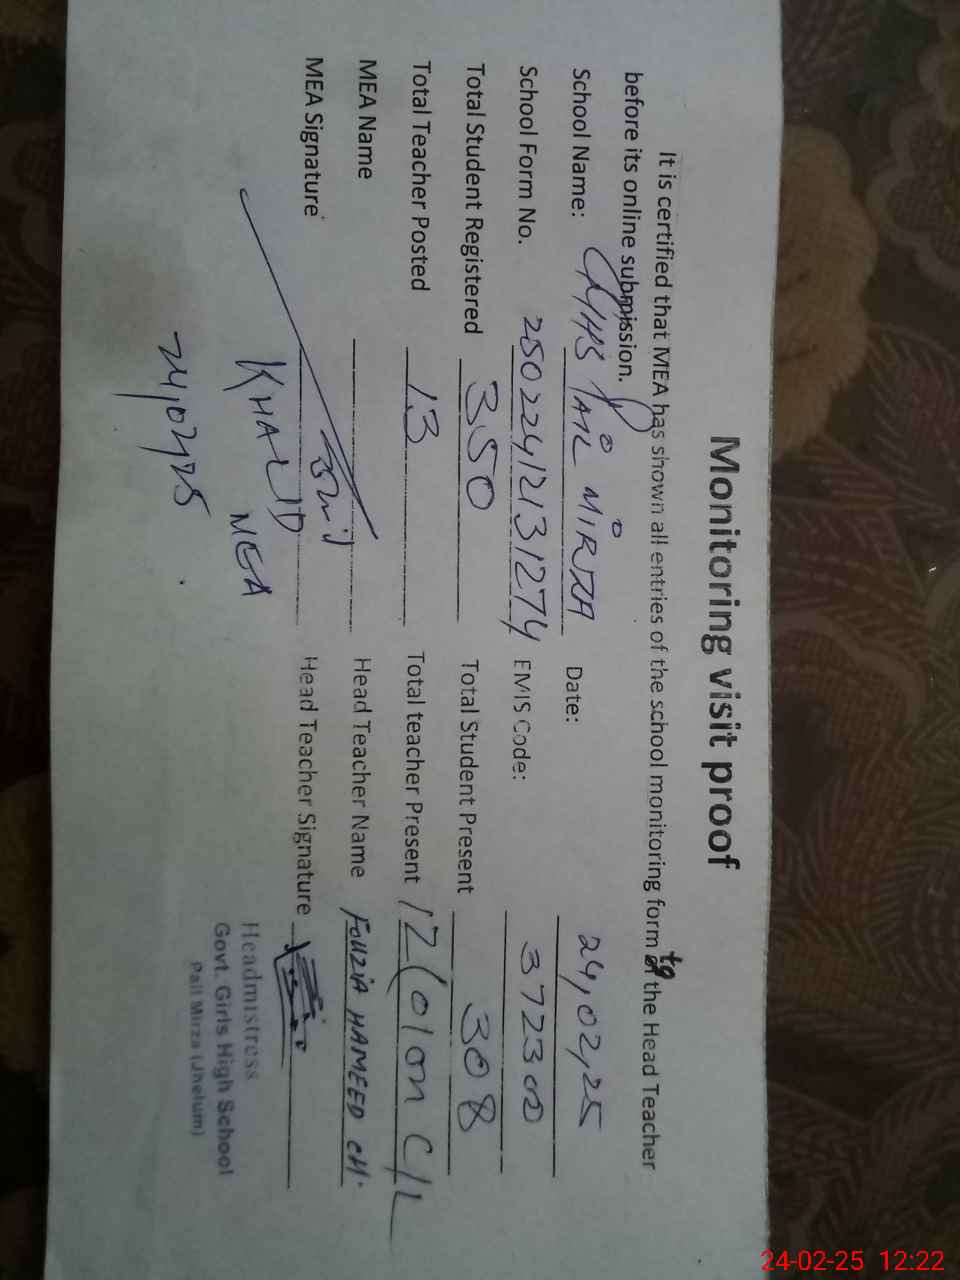 Monitoring visit proof
It is certified that MEA has shown all entries of the school monitoring form to the Head Teacher
before its online submission.
School Name: GGHS PAIL MIRZA Date: 24,02,25
School Form No. 25022412131274 EMIS Code: 372300
Total Student Registered 350 Total Student Present 308
Total Teacher Posted 13 Total teacher Present 12 (01 on C/L
MEA Name Head Teacher Name FOUZIA HAMEED CH.
MEA Signature Head Teacher Signature
KHALID
MEA
24,02,25
Headmistress
Govt. Girls High School
Pail Mirza (Jhelum)
24-02-25 12:22